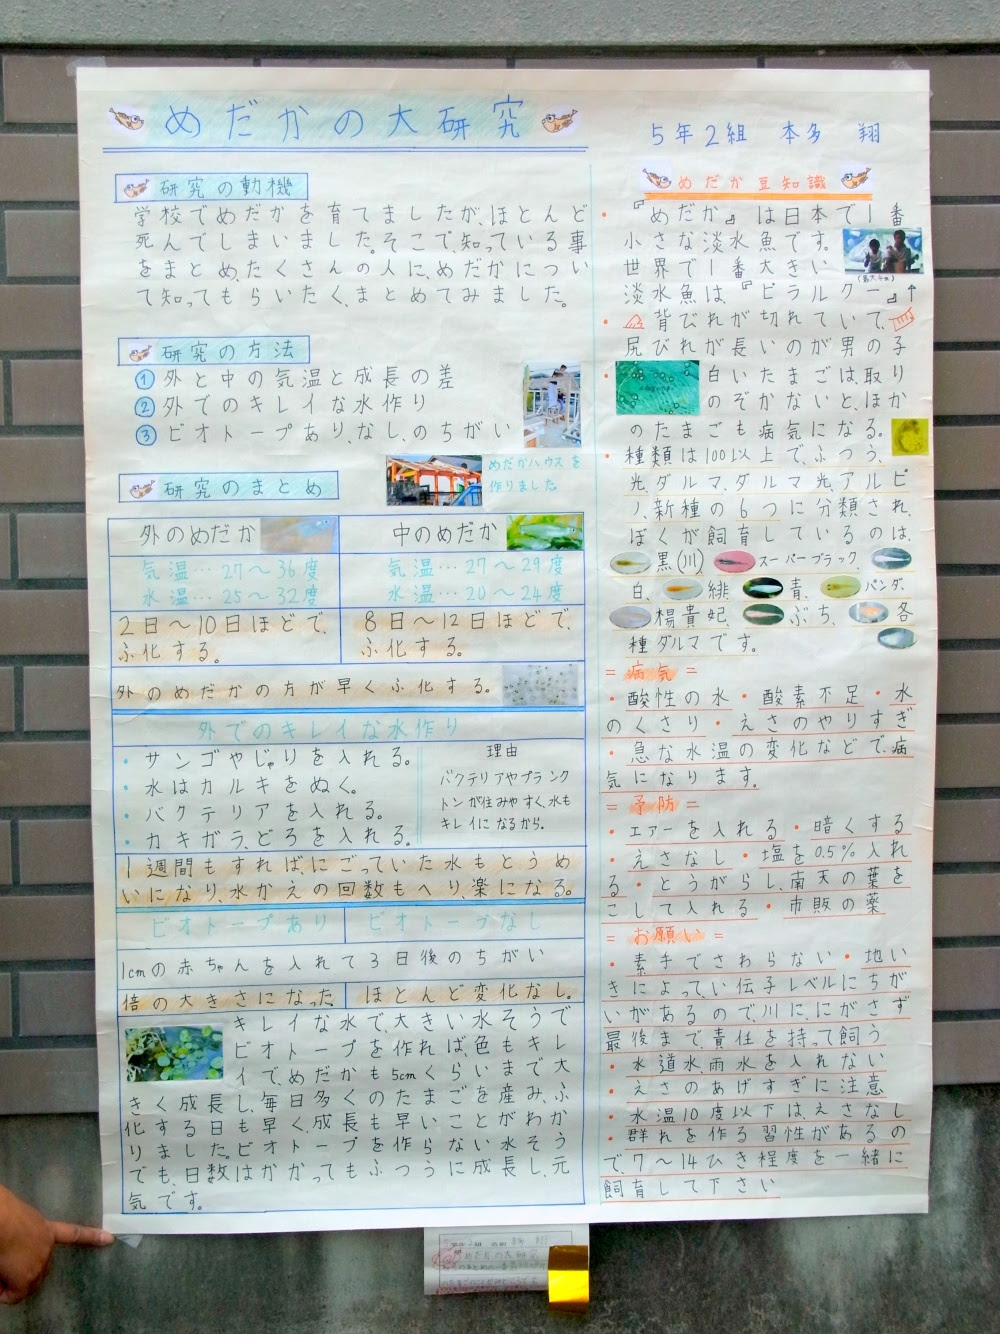 めだかの大研究
5年2組 本多 翔
研究の動機
学校でめだかを育てましたが、ほとんど
死んでしまいました。そこで、知っている事
をまとめ、たくさんの人に、めだかについ
て知ってもらいたく、まとめてみました。
研究の方法
① 外と中の気温と成長の差
② 外でのキレイな水作り
③ ビオトープあり、なし、のちがい
めだかハウスを
作りました
研究のまとめ
外のめだか
中のめだか
気温…27〜36度
水温…25〜32度
気温…27〜29度
水温…20〜24度
2日〜10日ほどで、
ふ化する。
8日〜12日ほどで、
ふ化する。
外のめだかの方が早くふ化する。
外でのキレイな水作り
・サンゴやじゃりを入れる。
・水はカルキをぬく。
・バクテリアを入れる。
・カキガラ、どろを入れる。
理由
バクテリアやプランク
トンが住みやすく、水も
キレイになるから。
1週間もすれば、にごっていた水もとうめ
いになり、水かえの回数もへり、楽になる。
ビオトープあり
ビオトープなし
1cmの赤ちゃんを入れて3日後のちがい
倍の大きさになった
ほとんど変化なし。
キレイな水で、大きい水そうで
ビオトープを作れば、色もキレ
イで、めだかも5cmくらいまで大
きく成長し、毎日多くのたまごを産み、ふ
化する日も早く、成長も早いことがわか
りました。ビオトープを作らない水そう
でも、日数はかかってもふつうに成長し、元
気です。
めだか豆知識
・『めだか』は日本で1番
小さな淡水魚です。
世界で1番大きい
淡水魚は、『ピラルクー』↑
・背びれが切れていて、
尻びれが長いのが男の子
・白いたまごは、取り
のぞかないと、ほか
のたまごも病気になる。
・種類は100以上で、ふつう、
光、ダルマ、ダルマ光、アルビ
ノ、新種の6つに分類され、
ぼくが飼育しているのは、
黒(川) スーパーブラック、
白、緋 青、パンダ、
楊貴妃、ぶち、各
種ダルマです。
=病気=
・酸性の水・酸素不足・水
のくさり・えさのやりすぎ
・急な水温の変化などで、病
気になります。
=予防=
・エアーを入れる・暗くする
・えさなし・塩を0.5%入れ
る・とうがらし、南天の葉を
こして入れる・市販の薬
=お願い=
・素手でさわらない・地い
きによって、い伝子レベルにちが
いがあるので、川に、にがさず
最後まで、責任を持って飼う
・水道水、雨水を入れない
・えさのあげすぎに注意
・水温10度以下は、えさなし
・群れを作る習性があるの
で、7〜14ひき程度を一緒に
飼育して下さい
めだかの大研究